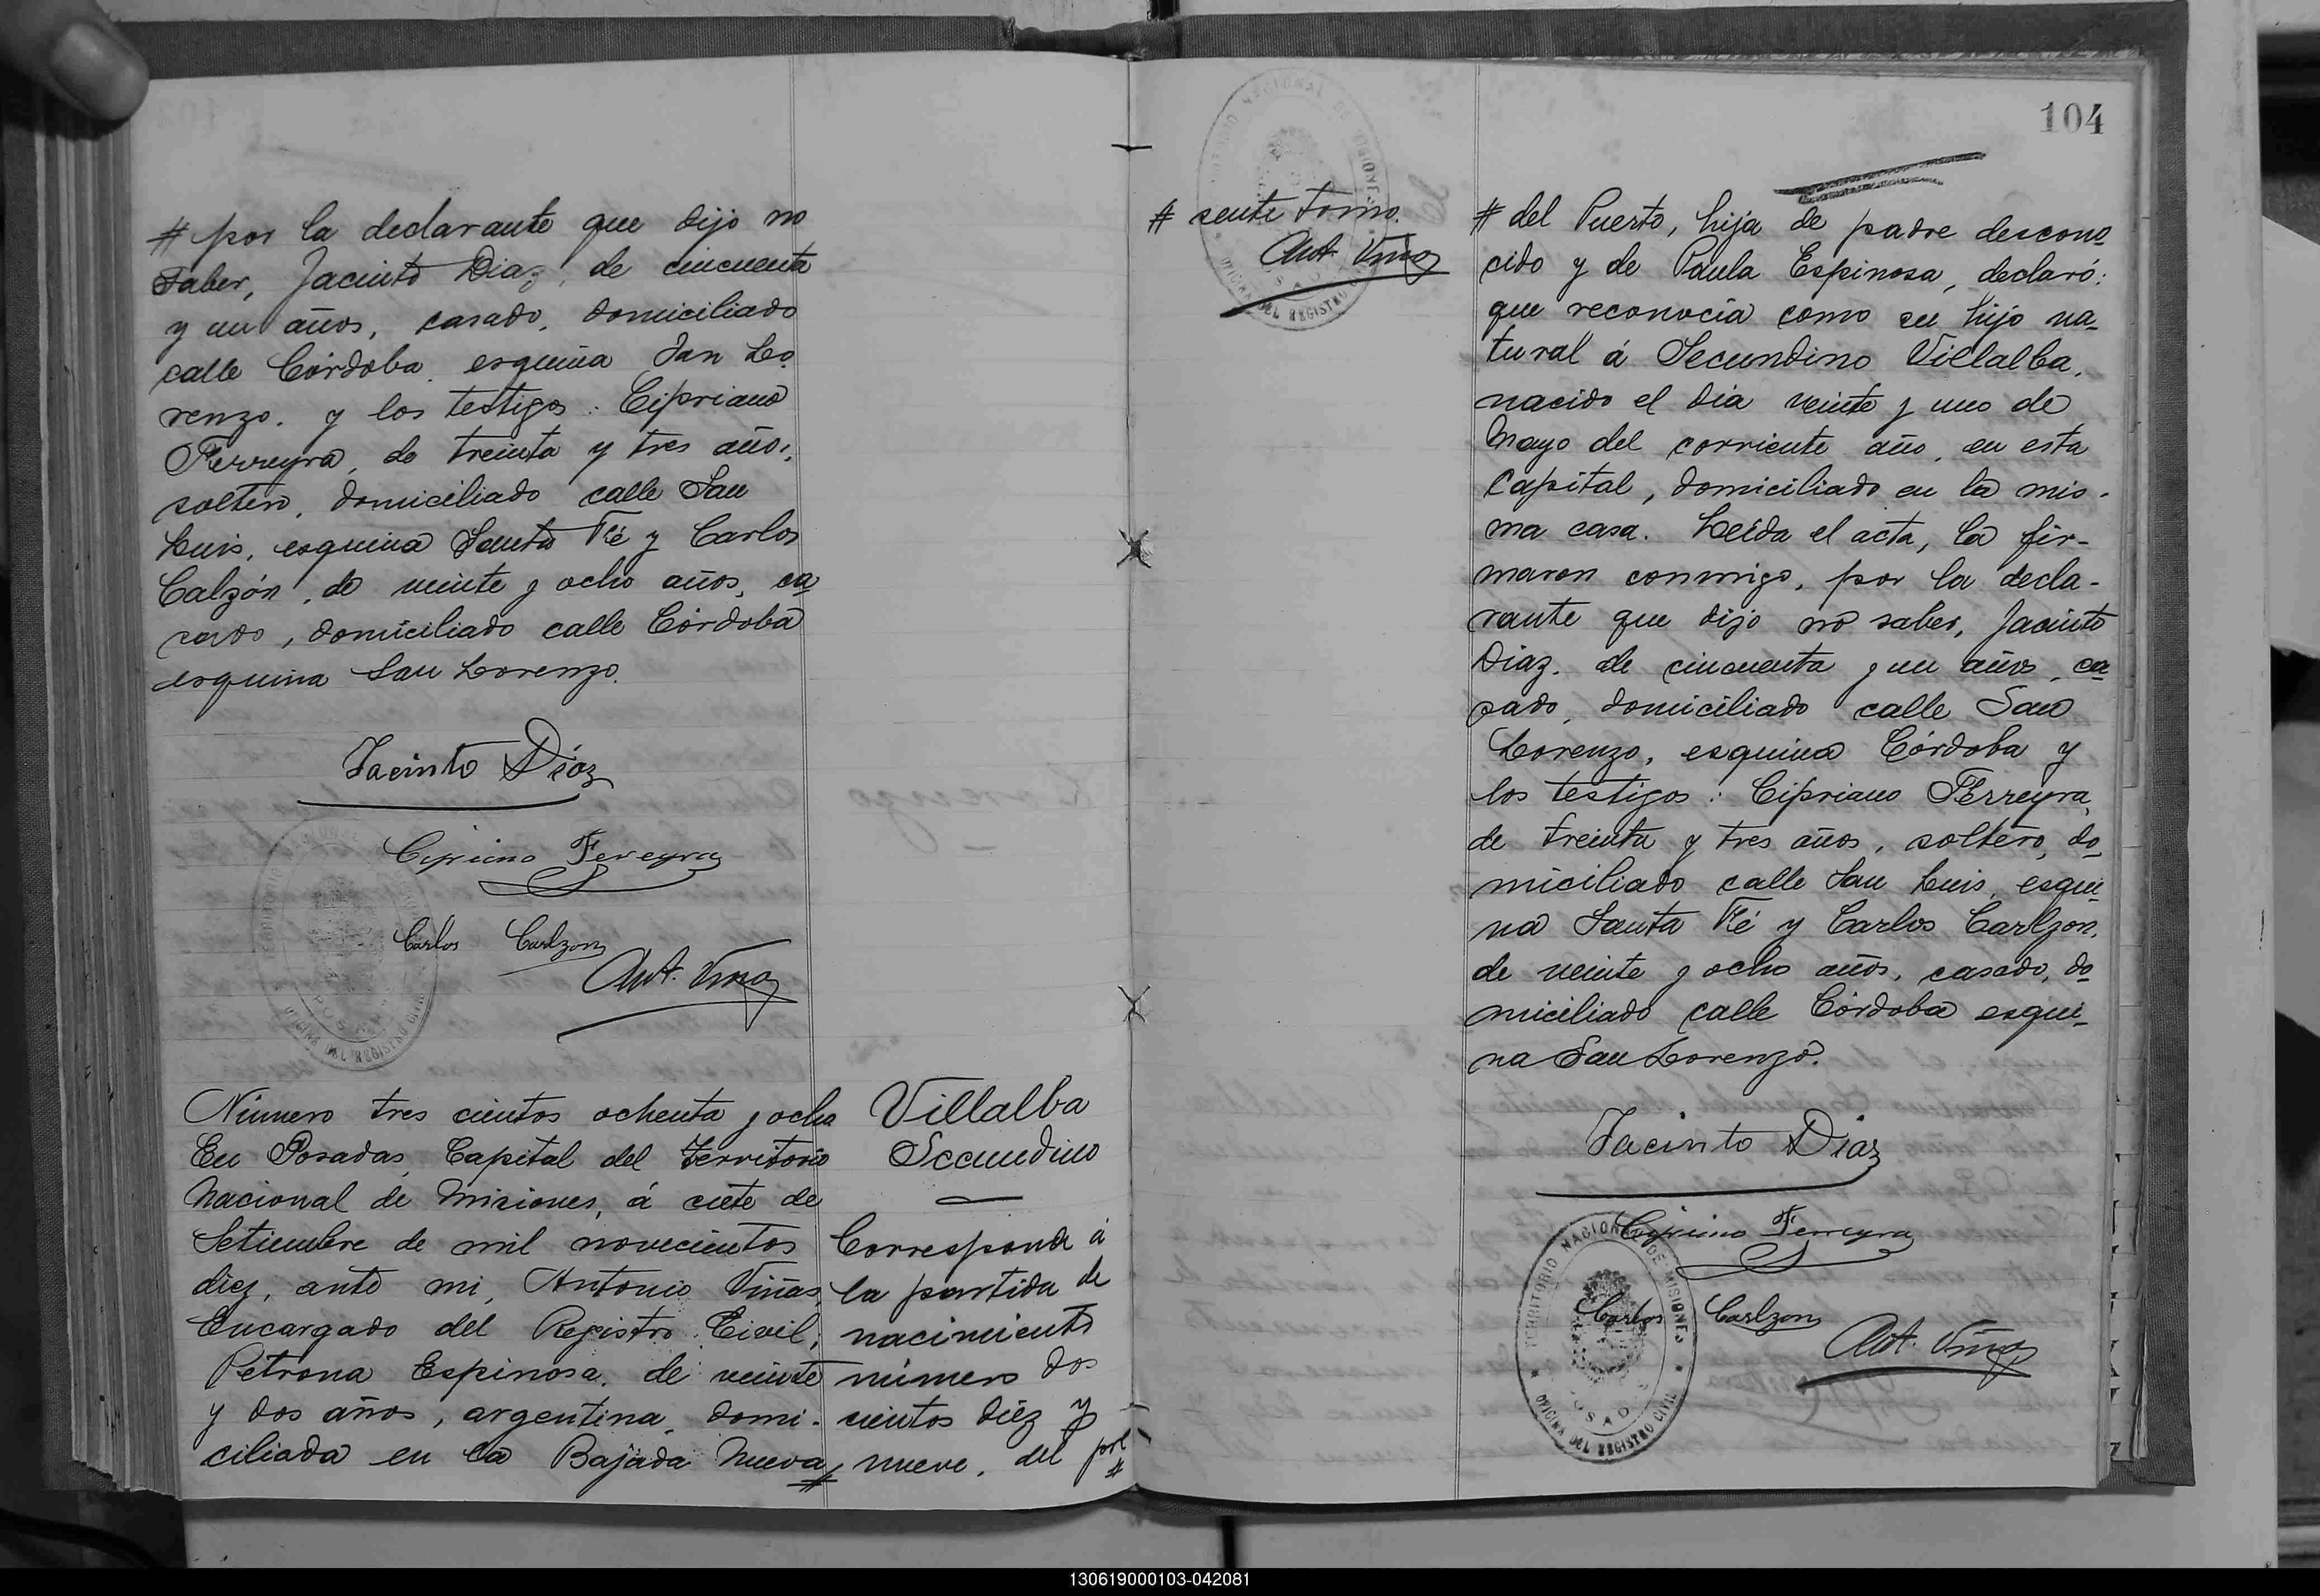 # por la declarante que dijo no
saber, Jacinto Diaz, de cincuenta
y un años, casado, domiciliado
calle Córdoba esquina San Lo
renzo. y los testigos: Cipriano
Ferreyra, de treinta y tres años,
soltero, domiciliado calle San
Luis, esquina Santa Fé y Carlos
Calzón, de veinte y ocho años, ca
sado, domiciliado calle Córdoba
esquina San Lorenzo.
Jacinto Díaz
Cipriano Ferreyra
Carlos Carlzon
Ant. Viñas
OFICINA DEL REGISTRO CIVIL
Número tres cientos ochenta y ocho
En Posadas, Capital del Territorio
Nacional de Misiones, á siete de
Setiembre de mil novecientos
diez, ante mi, Antonio Viñas,
Encargado del Registro Civil;
Petrona Espinosa, de veinte
y dos años, argentina, domi-
ciliada en la Bajada Nueva #
Villalba
Secundino
Corresponde á
la partida de
nacimiento
número dos
cientos diez y
nueve, del pre
#
# sente tomo.
Ant. Viñas
OFICINA DEL REGISTRO
104
# del Puerto, hija de padre descono
cido y de Paula Espinosa, declaró:
que reconocía como su hijo na-
tural á Secundino Villalba,
nacido el dia veinte y uno de
Mayo del corriente año, en esta
Capital, domiciliado en la mis-
ma casa. Leída el acta, la fir-
maron conmigo, por la decla-
rante que dijo no saber, Jacinto
Diaz, de cincuenta y un años, ca
sado, domiciliado calle San
Lorenzo, esquina Córdoba y
los testigos: Cipriano Ferreyra,
de treinta y tres años, soltero, do
miciliado calle San Luis, esqui-
na Santa Fé y Carlos Carlzon,
de veinte y ocho años, casado, do
miciliado calle Córdoba esqui-
na San Lorenzo.
Jacinto Diaz
Cipriano Ferreyra
Carlos Carlzon
Ant. Viñas
TERRITORIO NACIONAL DE MISIONES
POSADAS
OFICINA DEL REGISTRO CIVIL
130619000103-042081